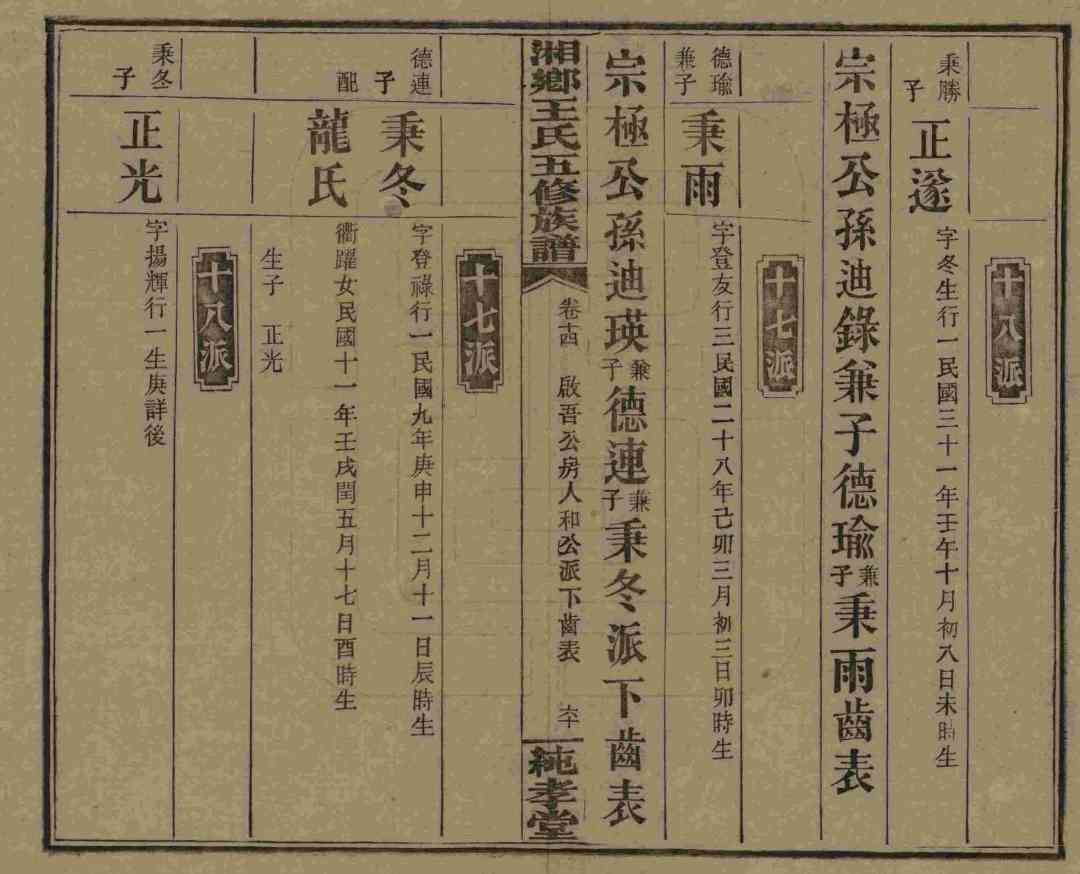 十八派
秉勝子
正遂
字冬生行一民國三十一年壬午十月初八日未時生
宗極公孫迪錄兼子德瑜兼子秉雨齒表
十七派
德瑜兼子
秉雨
字登友行三民國二十八年己卯三月初三日卯時生
宗極公孫迪瑛兼子德連兼子秉冬派下齒表
湘鄉王氏五修族譜
卷十四 啟吾公房人和公派下齒表 六十
純孝堂
十七派
德連子
秉冬
字登祿行一民國九年庚申十二月十一日辰時生
配
龍氏
衢躍女民國十一年壬戌閏五月十七日酉時生
生子 正光
十八派
秉冬子
正光
字揚輝行一生庚詳後